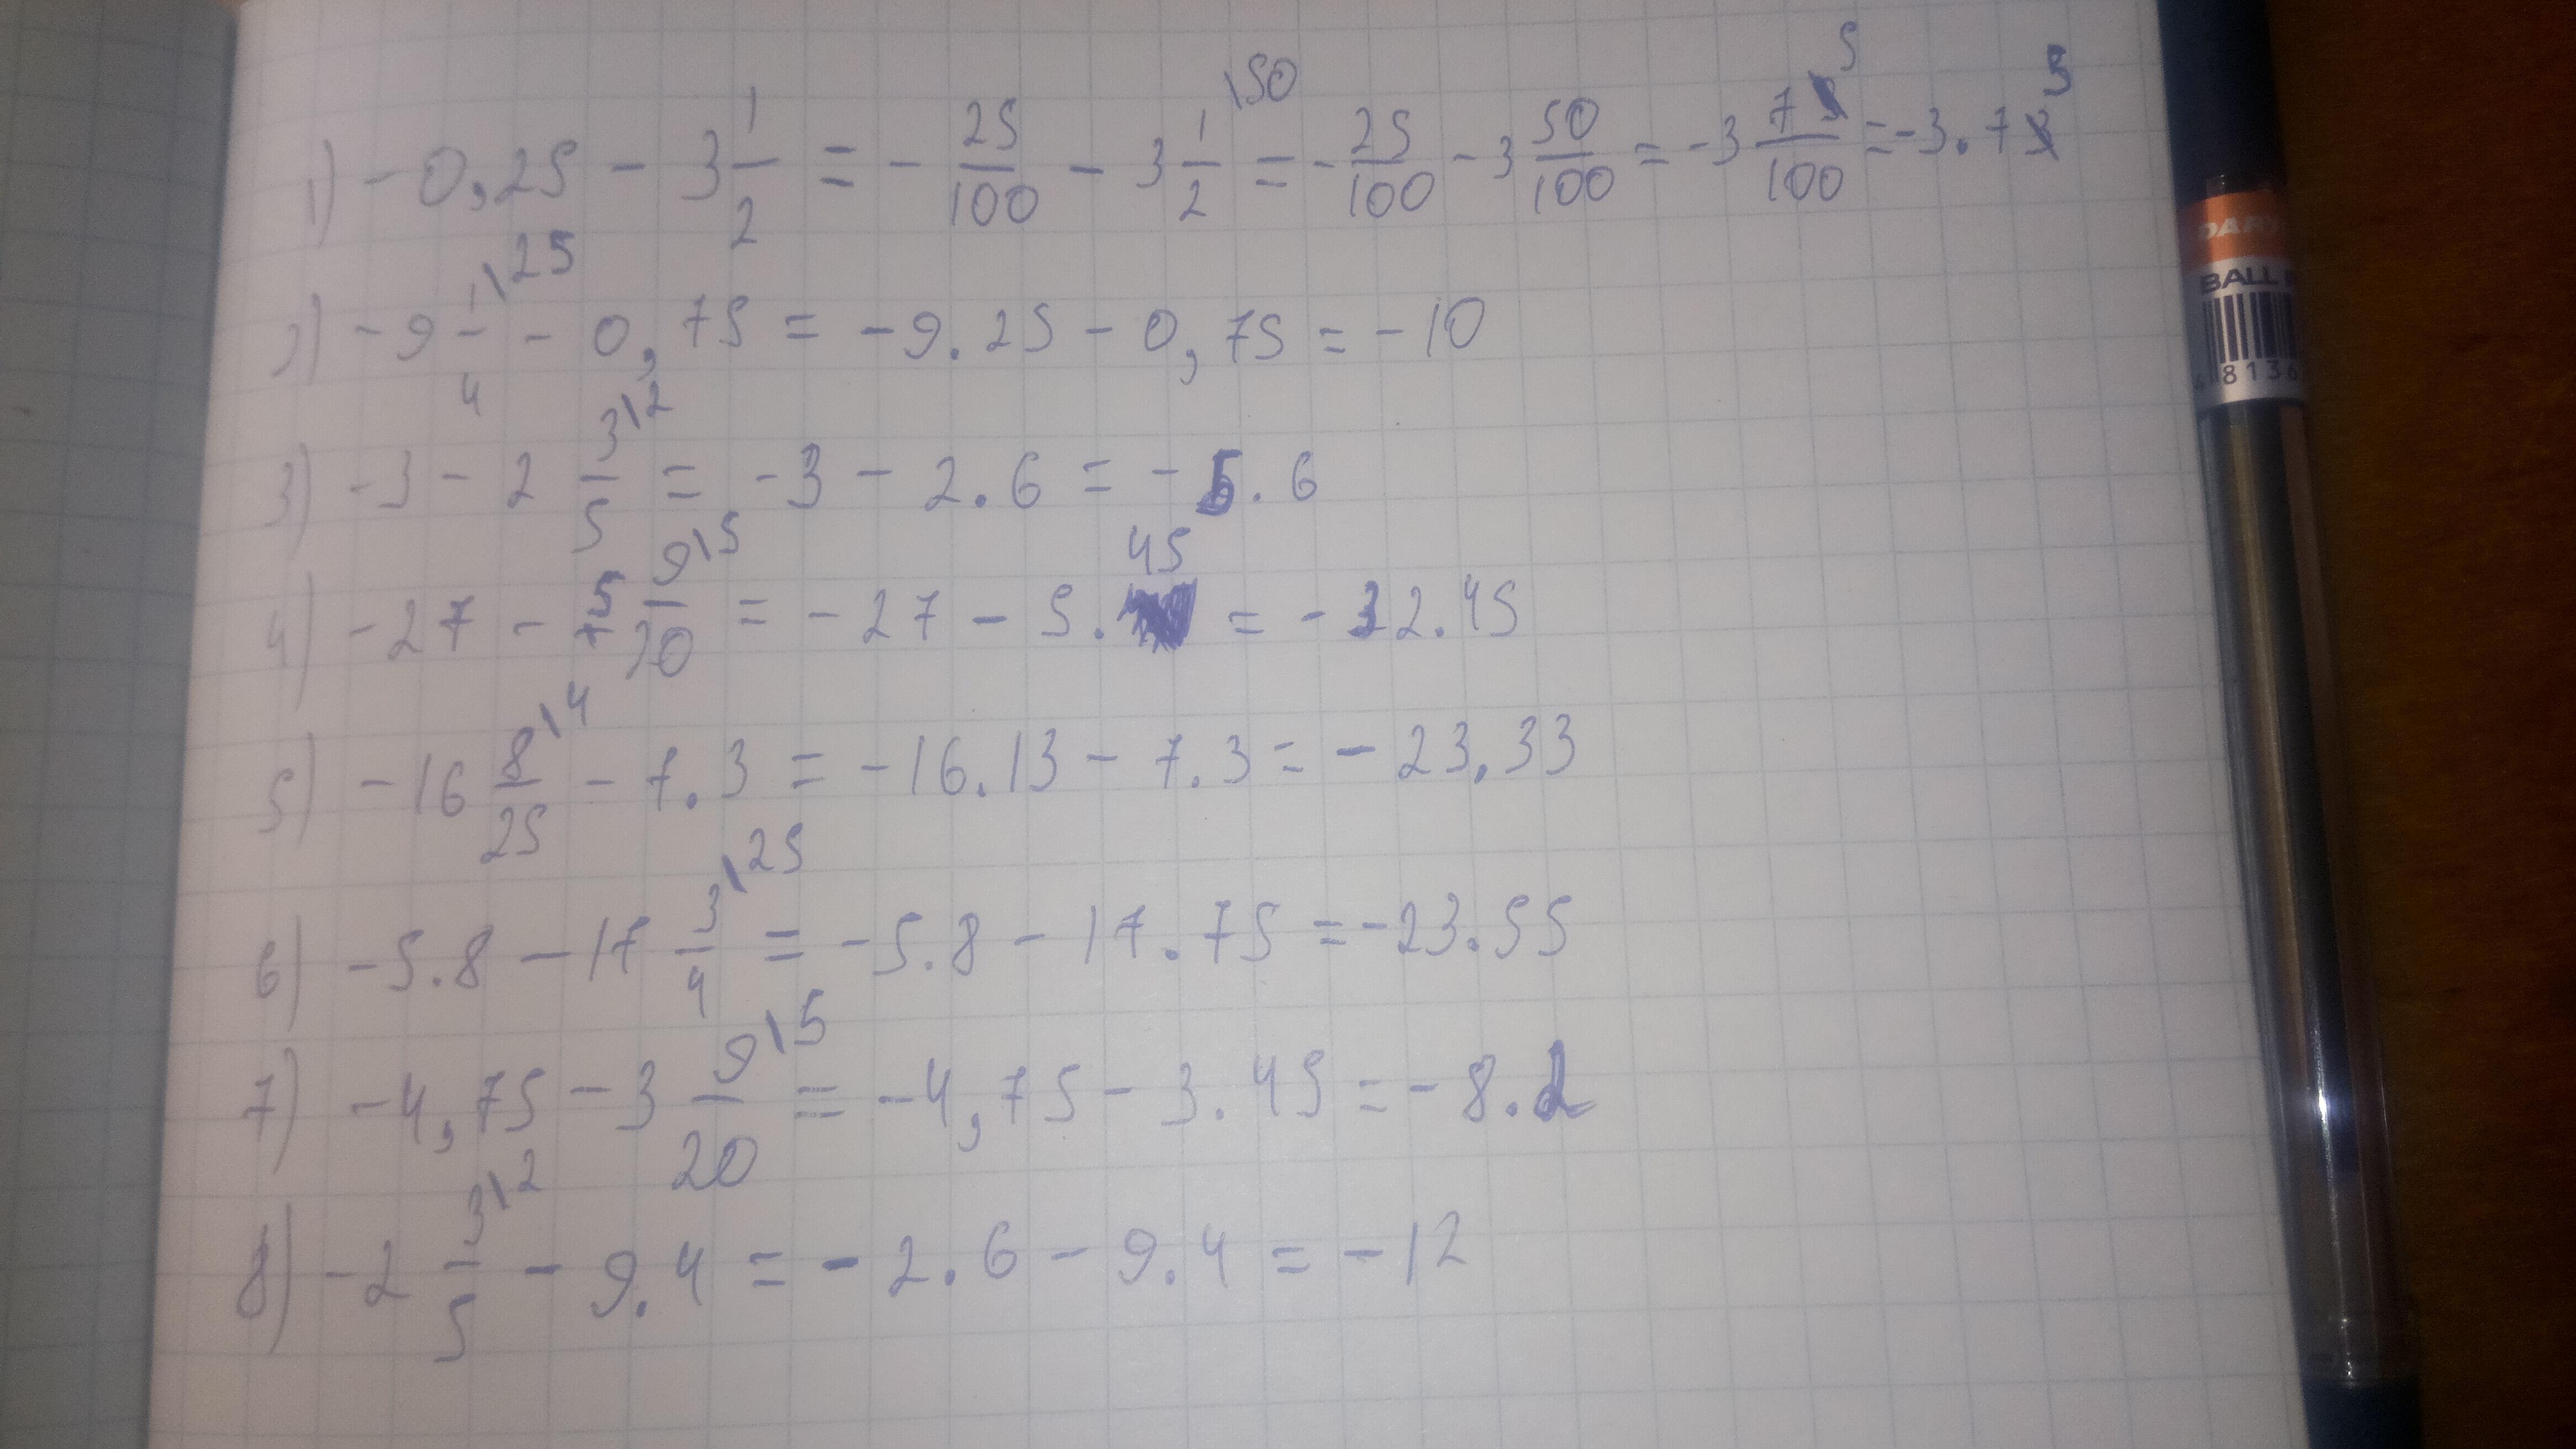 1) -0,25 - 3 1/2 = - 25/100 - 3 1/2 \50 = - 25/100 - 3 50/100 = -3 75/100 = -3.75
2) -9 1/4 \25 - 0,75 = -9.25 - 0,75 = -10
3) -3 - 2 3/5 \2 = -3 - 2.6 = -5.6
4) -27 - 5 9/20 \5 = -27 - 5.45 = -32.45
5) -16 8/25 \4 - 7.3 = -16.13 - 7.3 = -23,33
6) -5.8 - 17 3/4 \25 = -5.8 - 17.75 = -23.55
7) -4,75 - 3 9/20 \5 = -4,75 - 3.45 = -8.2
8) -2 3/5 \2 - 9.4 = -2.6 - 9.4 = -12
BALL
8136